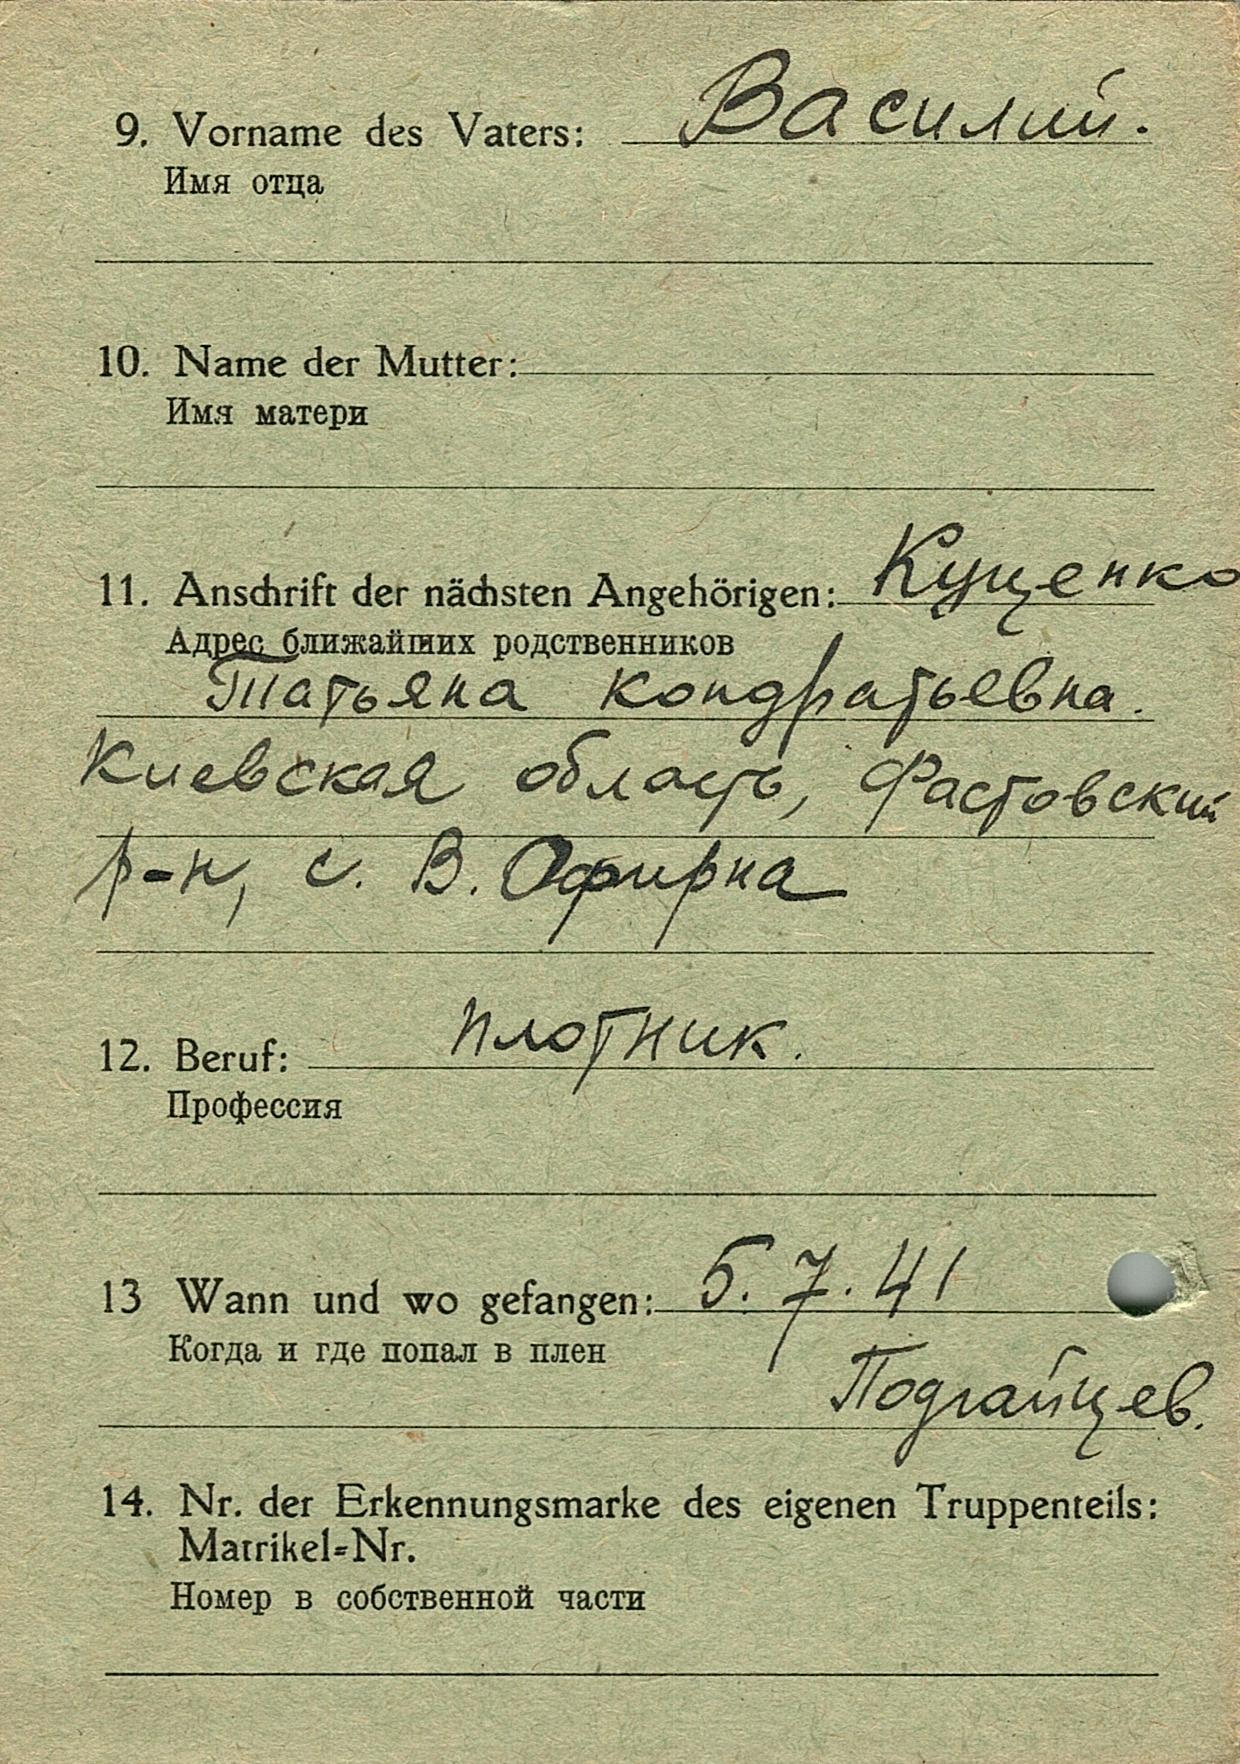 9. Vorname des Vaters: Василий.
Имя отца
10. Name der Mutter:
Имя матери
11. Anschrift der nächsten Angehörigen: Куценко
Адрес ближайших родственников
Татьяна Кондратьевна.
Киевская область, Фастовский
р-н, с. В. Офирна
12. Beruf: плотник.
Профессия
13 Wann und wo gefangen: 5.7.41
Когда и где попал в плен
Подгайцев.
14. Nr. der Erkennungsmarke des eigenen Truppenteils:
Matrikel=Nr.
Номер в собственной части